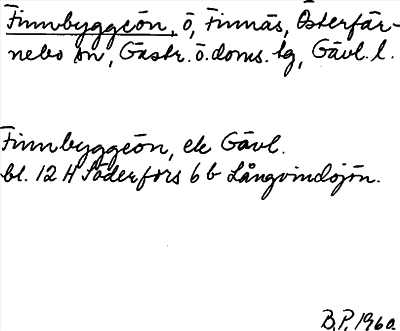 Finnbyggeön, ö, Finnäs, Österfär-
nebo sn, Gästr. ö. doms. tg, Gävl. l.
Finnbyggeön, ek Gävl.
bl. 12 H Söderfors 6 b Långvindsjön.
B.P. 1960.